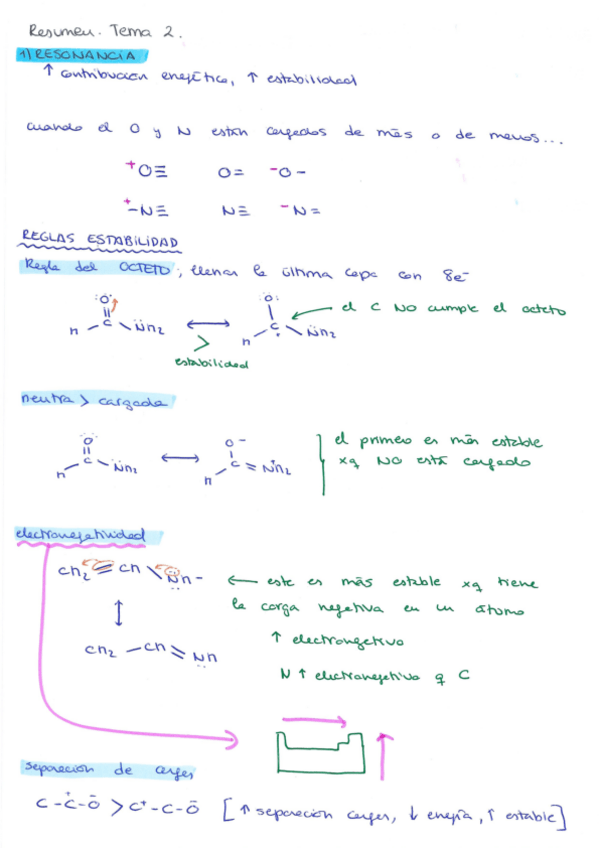 Resumen. Tema 2.
1) RESONANCIA
↑ contribución energética, ↑ estabilidad
cuando el O y N están cargados de más o de menos...
+O≡ O= -O-
+-N≡ N≡ -N=
REGLAS ESTABILIDAD
Regla del OCTETO; llenar la última capa con 8e-
:O: :O:
H C NH2 ⟷ H C NH2 ← el C NO cumple el octeto
>
estabilidad
neutra > cargada
O O-
H C NH2 ⟷ H C = NH2 el primero es más estable
xq NO está cargado
electronegatividad
CH2 = CH NH- ← este es más estable xq tiene
la carga negativa en un átomo
↑ electronegativo
CH2 - CH = NH
N ↑ electronegativo q C
separación de cargas
C-C+-O- > C+-C-O- [↑ separación cargas, ↓ energía, ↑ estable]